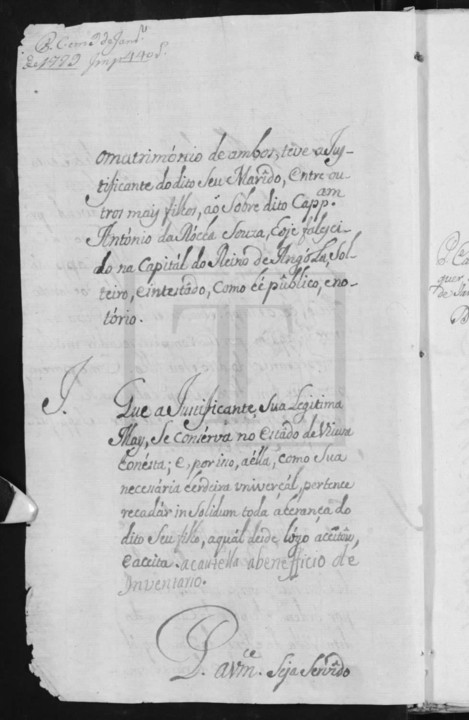 de 1789
omatrimónio de ambos, teve a Jus-
tificante do dito Seu Marido, entre ou-
tros mais filhos, aô Sobre dito Capp.am
António da Rócha Souza, hoje faleci-
do na Capitál do Reino de Angóla, Sol-
teiro, eintestádo, como hé público, eno-
tório.
Que a Justificante, Sua Legitima
May, Se consérva no estádo de Viuva
honésta; e, por isso, aélla, como Sua
necessária érdeira univerçál, pertence
recadár in Solidum toda a erança do
dito Seu filho, aquál desde lógo aceitou,
e aceita acautélla abenefficio de
Inventario.
P. aVm.ce Seja Servido